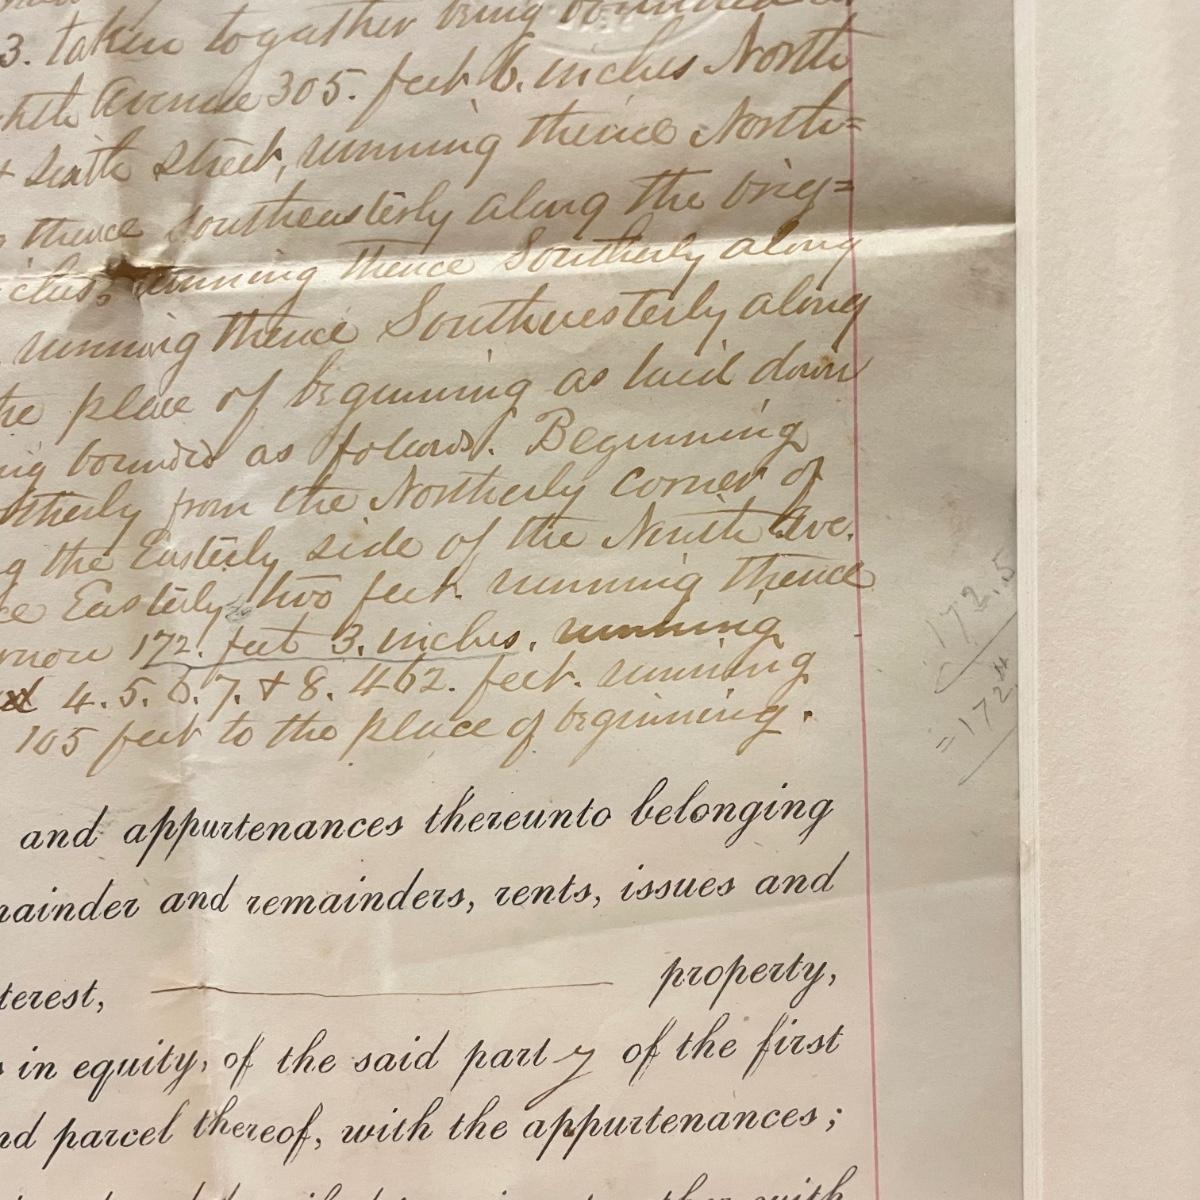 3. taken together being bounded
Avenue 305. feet 6. inches North
+ sixth street, running thence North=
thence southeasterly along the brig=
ches, running thence Southerly along
running thence Southwesterly along
he place of beginning as laid down
ing bounded as follows. Beginning
therly from the Northerly corner of
g the Easterly side of the Ninth Ave.
ce Easterly two feet. running thence
172. feet 3. inches. running
4. 5. 6. 7. & 8. 462. feet. running
105 feet to the place of beginning.
172.5
=172"
and appurtenances thereunto belonging
mainder and remainders, rents, issues and
terest, property,
s in equity, of the said part y of the first
nd parcel thereof, with the appurtenances;
with